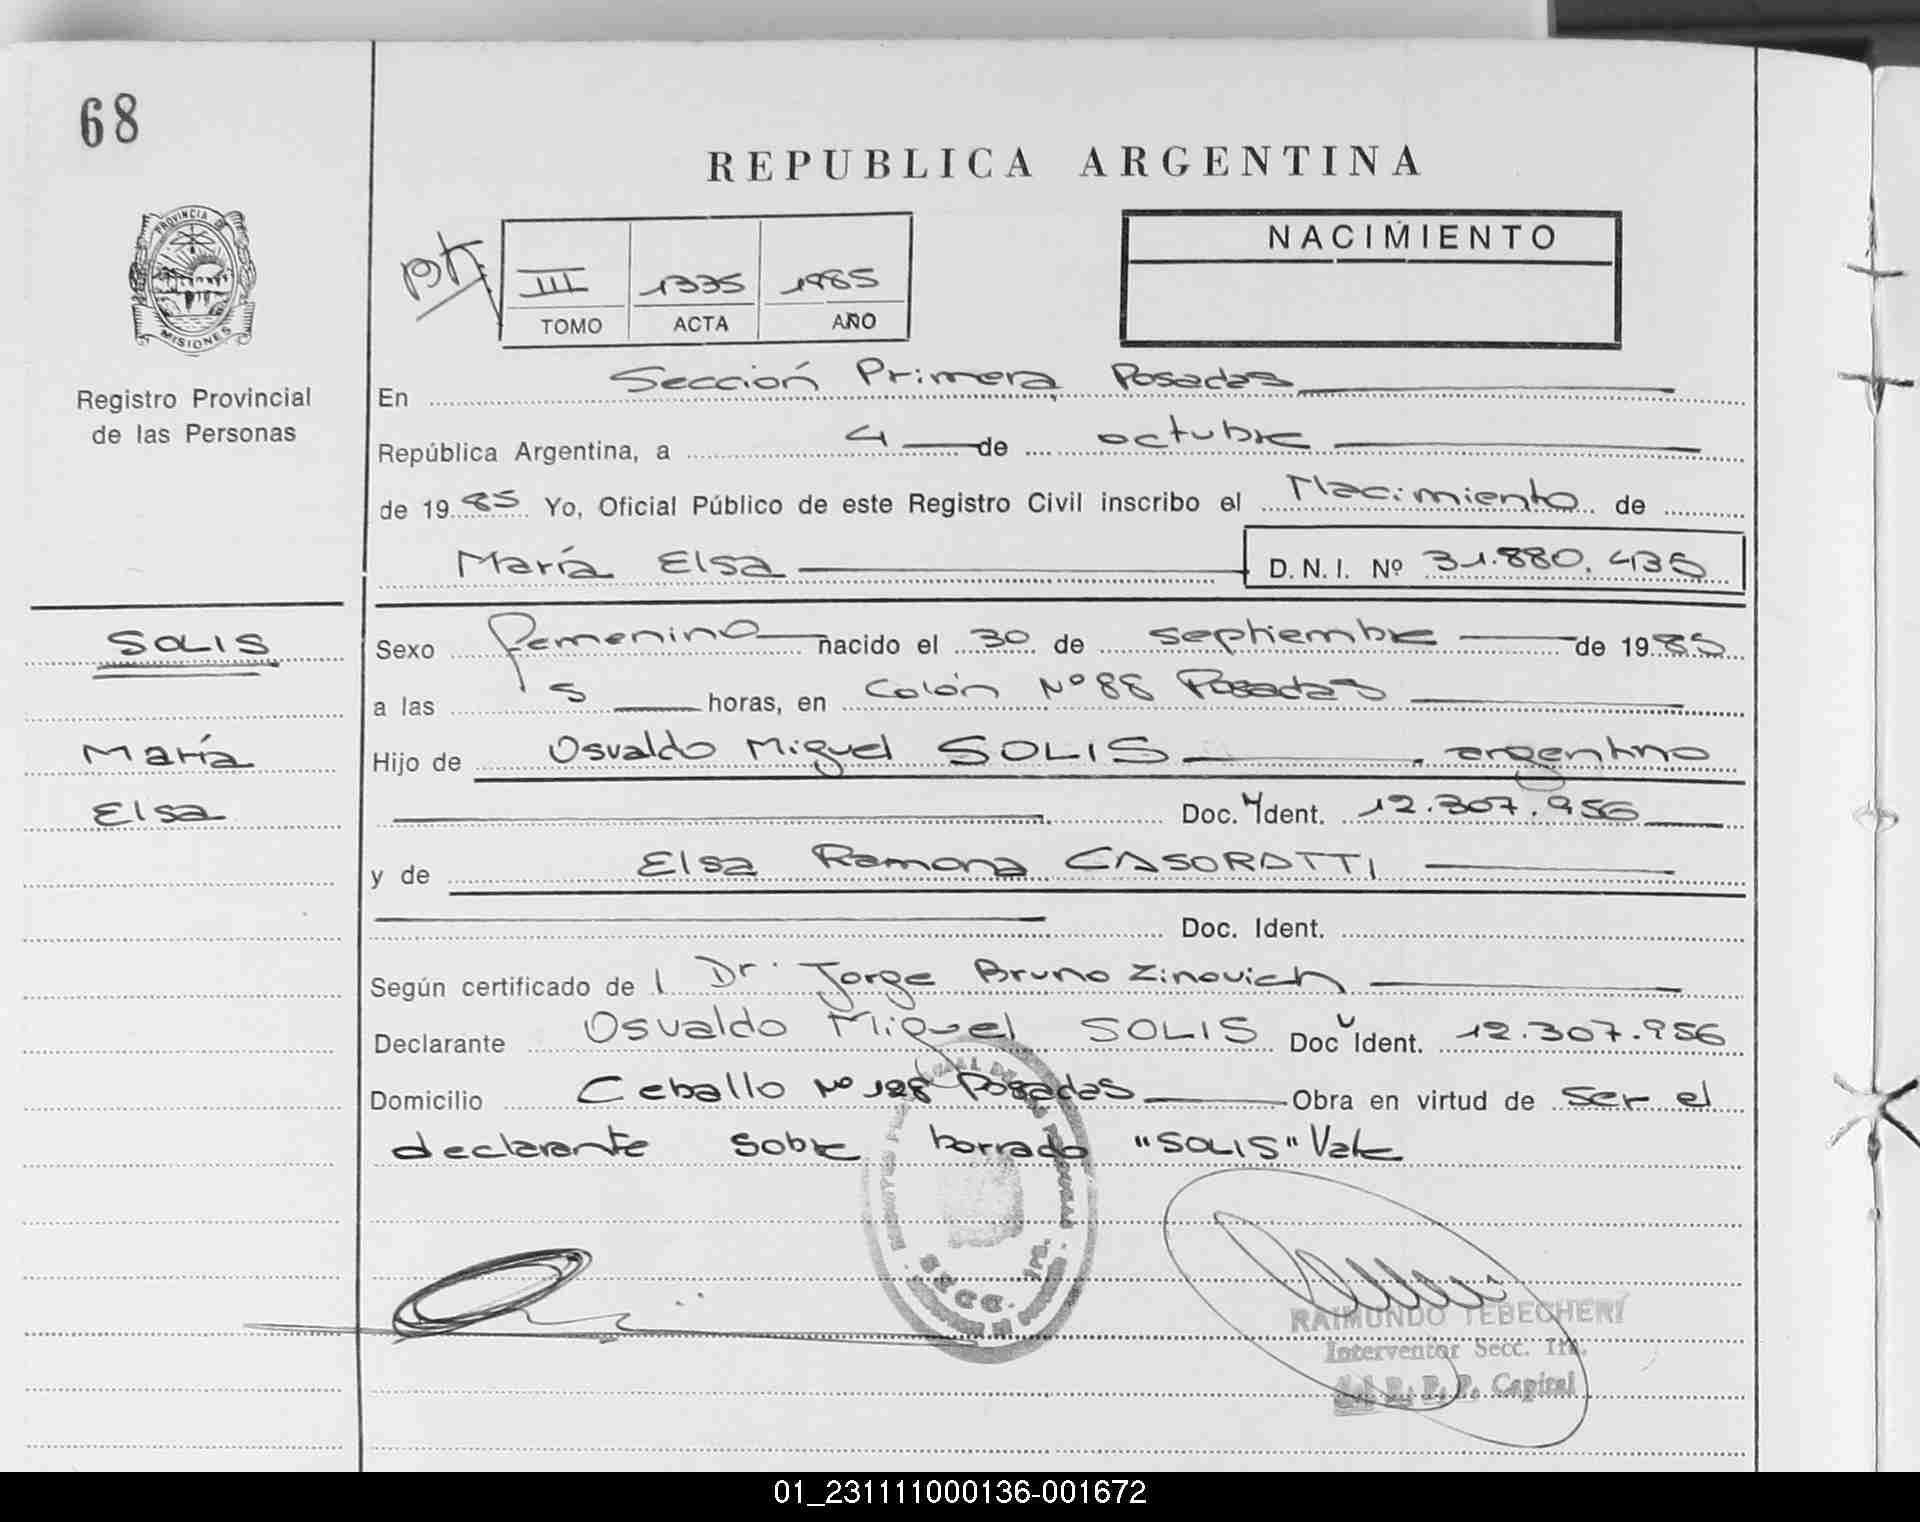 68
REPUBLICA ARGENTINA
PROVINCIA DE
MISIONES
Registro Provincial
de las Personas
III 1335 1985
TOMO ACTA AÑO
NACIMIENTO
En Sección Primera Posadas
República Argentina, a 4 de octubre
de 1985 Yo, Oficial Público de este Registro Civil inscribo el Nacimiento de
María Elsa D.N.I. Nº 31.880.435
SOLIS
María
Elsa
Sexo femenino nacido el 30 de septiembre de 1985
a las 5 horas, en Colón Nº 88 Posadas
Hijo de Osvaldo Miguel SOLIS, argentino
Doc. Ident. 12.307.956
y de Elsa Ramona CASORATTI
Doc. Ident.
Según certificado de Dr. Jorge Bruno Zinovich
Declarante Osvaldo Miguel SOLIS Doc Ident. 12.307.956
Domicilio Ceballo Nº 128 Posadas Obra en virtud de ser el
declarante sobre borrado "SOLIS" Vale
SECC. 1ra.
RAIMUNDO TEBECHERI
Interventor Secc. 1ra.
del R. P. P. Capital
01_231111000136-001672